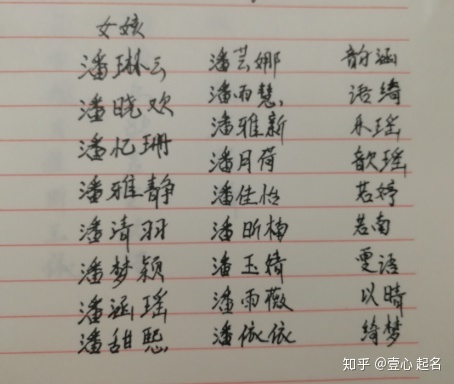 女孩
潘琳云 潘芸娜 韵涵
潘晓欢 潘雨慧 语绮
潘忆珊 潘雅新 乐瑶
潘雅静 潘月荷 歆瑶
潘清羽 潘佳怡 若婷
潘梦颖 潘昕楠 若南
潘涵瑶 潘玉绮 雯语
潘甜熙 潘雨薇 以晴
潘依依 绮梦
知乎 @壹心 起名